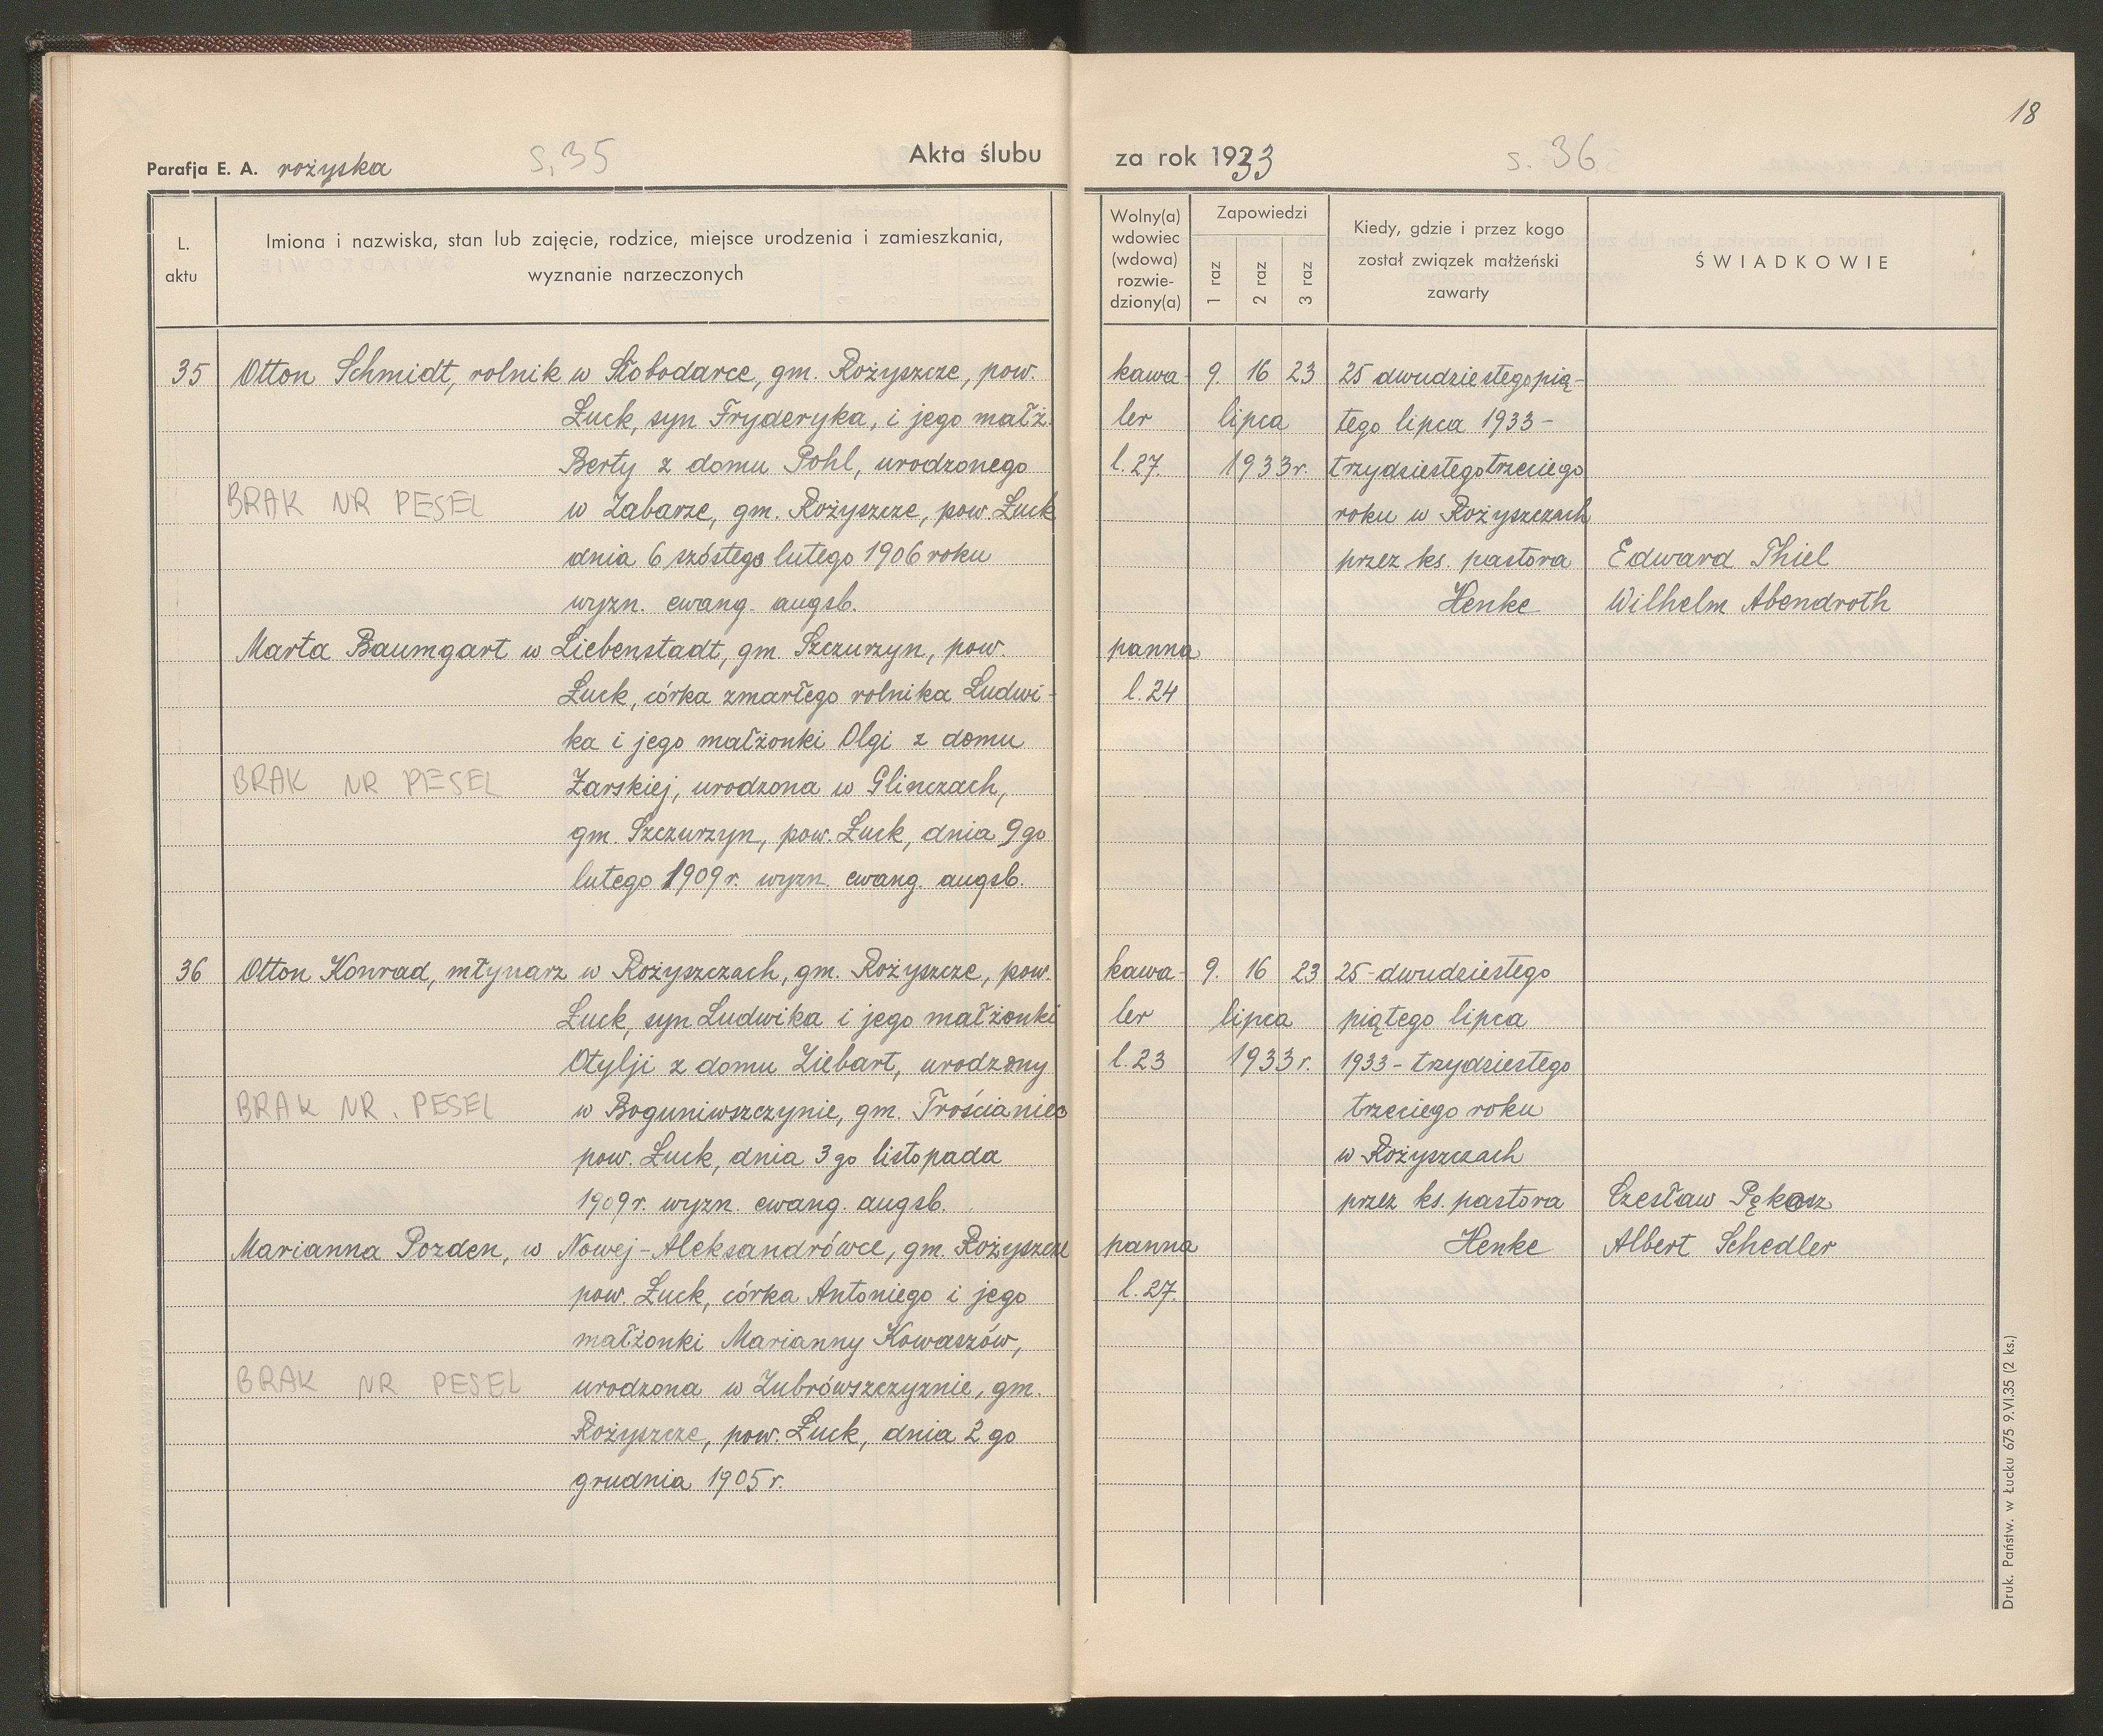 18
Parafja E. A. rożyska
s. 35
Akta ślubu
za rok 1933
s. 36
L. aktu
Imiona i nazwiska, stan lub zajęcie, rodzice, miejsce urodzenia i zamieszkania,
wyznanie narzeczonych
Wolny(a)
wdowiec
(wdowa)
rozwie-
dziony(a)
Zapowiedzi
1 raz
2 raz
3 raz
Kiedy, gdzie i przez kogo
został związek małżeński
zawarty
ŚWIADKOWIE
35
Otton Schmidt, rolnik w Słobodarce, gm. Rożyszcze, pow.
Łuck, syn Fryderyka, i jego małż.
Berty z domu Pohl, urodzonego
BRAK NR PESEL
w Zabarze, gm. Rożyszcze, pow. Łuck
dnia 6 szóstego lutego 1906 roku
wyzn. ewang. augsb.
Marta Baumgart w Liebenstadt, gm. Szczurzyn, pow.
Łuck, córka zmarłego rolnika Ludwi-
ka i jego małżonki Olgi z domu
BRAK NR PESEL
Żarskiej, urodzona w Glinczach,
gm. Szczurzyn, pow. Łuck, dnia 9go
lutego 1909 r. wyzn. ewang. augsb.
kawa-
ler
l. 27.
9. 16 23
lipca
1933 r.
25 dwudziestego pią-
tego lipca 1933 -
trzydziestego trzeciego
roku w Rożyszczach
przez ks. pastora
Henke
Edward Thiel
Wilhelm Abendroth
panna
l. 24
36
Otton Konrad, młynarz w Rożyszczach, gm. Rożyszcze, pow.
Łuck, syn Ludwika i jego małżonki
Otylji z domu Ziebart, urodzony
BRAK NR. PESEL
w Boguniwszczynie, gm. Trościaniec
pow. Łuck, dnia 3 go listopada
1909 r. wyzn. ewang. augsb.
Marianna Pozden, w Nowej-Aleksandrówce, gm. Rożyszcze
pow. Łuck, córka Antoniego i jego
małżonki Marianny Kowaszów,
BRAK NR PESEL
urodzona w Zubrówszczyznie, gm.
Rożyszcze, pow. Łuck, dnia 2 go
grudnia 1905 r.
kawa-
ler
l. 23
9. 16 23
lipca
1933 r.
25 - dwudziestego
piątego lipca
1933 - trzydziestego
trzeciego roku
w Rożyszczach
przez ks. pastora
Henke
Czesław Pękosz
Albert Schedler
panna
l. 27.
Druk. Państw. w Łucku 675 9.VI.35 (2 ks.)